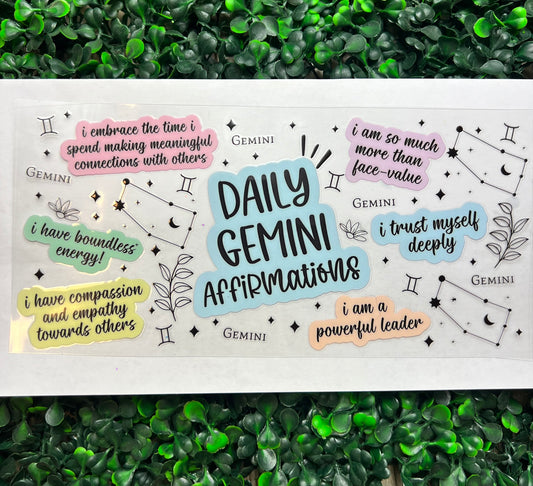 i embrace the time i
spend making meaningful
connections with others
GEMINI
i am so much
more than
face-value
GEMINI
DAILY
GEMINI
AFFIRMATIONS
GEMINI
i have boundless
energy!
i trust myself
deeply
i have compassion
and empathy
towards others
GEMINI
i am a
powerful leader
GEMINI